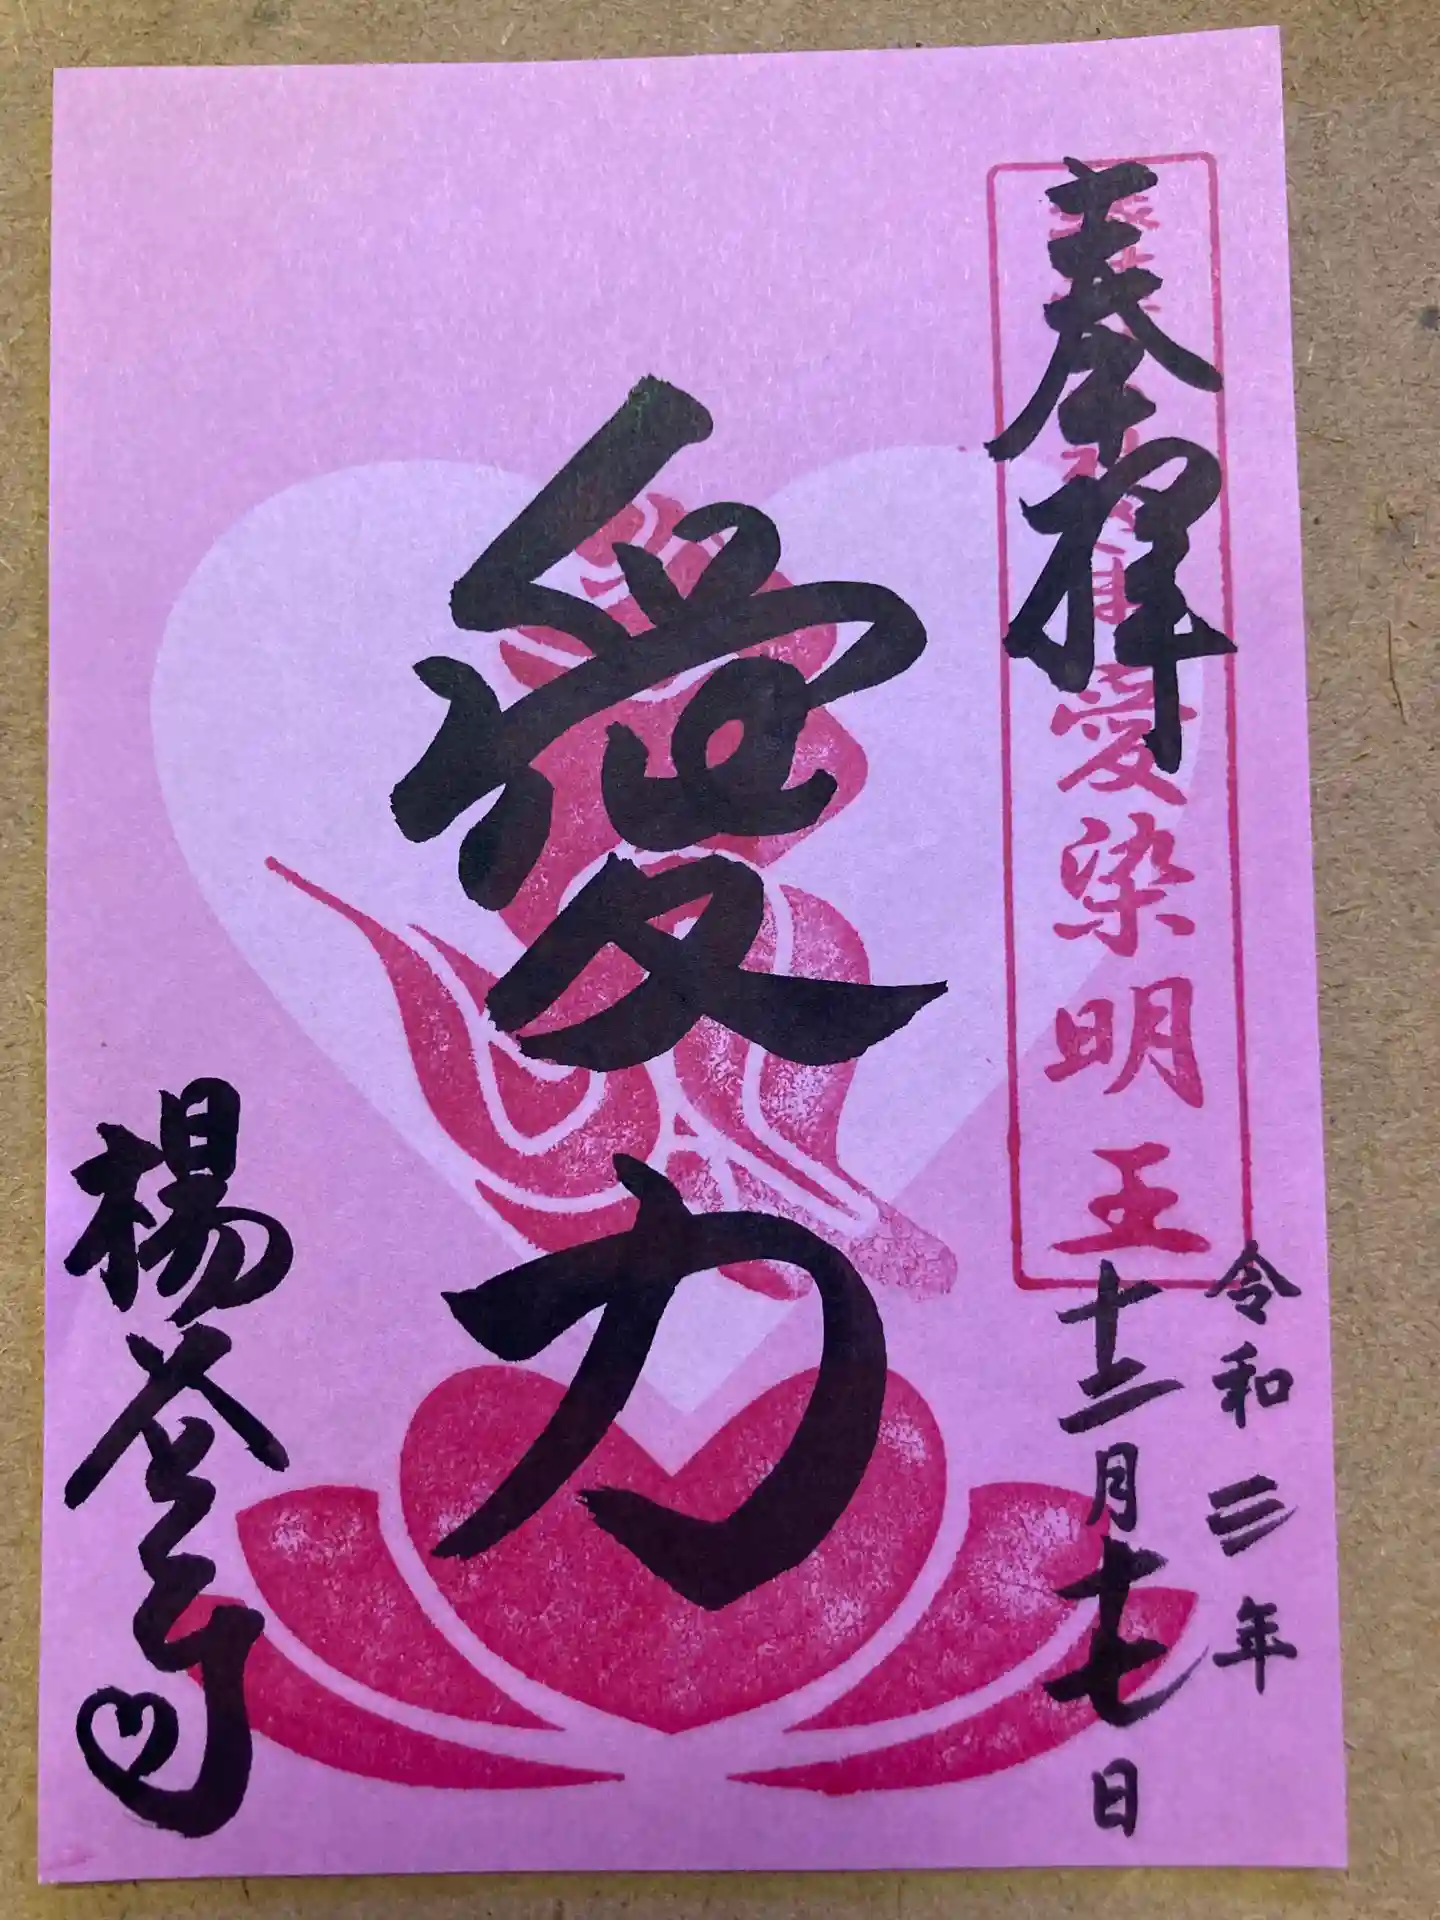 奉拝
愛染明王
令和三年
十二月十七日
愛力
楊谷寺